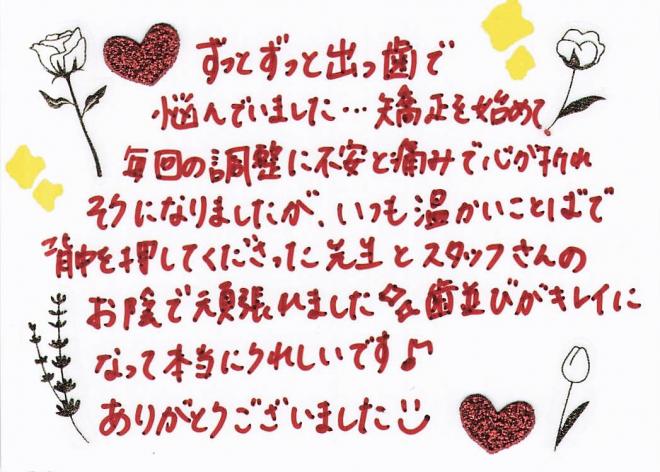 ずっとずっと出っ歯で
悩んでいました…矯正を始めて、
毎回の調整に不安と痛みで心が折れ
そうになりましたが、いつも温かいことばで
背中を押してくださった先生とスタッフさんの
お陰で頑張れました 歯並びがキレイに
なって本当にうれしいです♪
ありがとうございました